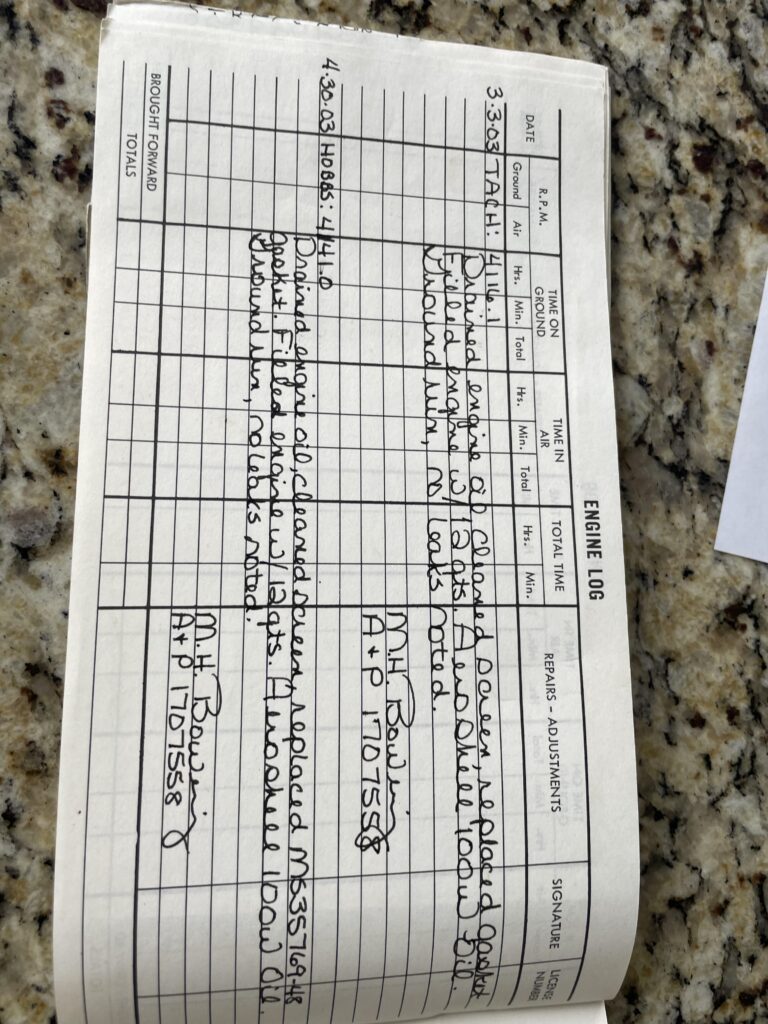 ENGINE LOG
DATE R.P.M. TIME ON GROUND TIME IN AIR TOTAL TIME REPAIRS - ADJUSTMENTS SIGNATURE LICENSE NUMBER
Ground Air Hrs. Min. Total Hrs. Min. Total Hrs. Min.
3.3.03 TACH: 4116.1
Drained engine oil cleaned screen, replaced gasket
Filled engine w/ 12 qts. Aeroshell 100W Oil.
Ground run, no leaks noted.
M.H. Bowen
A+P 1707558
4.30.03 HOBBS: 4141.0
Drained engine oil, cleaned screen, replaced MS35769-48
gasket. Filled engine w/ 12 qts. Aeroshell 100W Oil.
Ground run, no leaks noted.
M.H. Bowen
A+P 1707558
BROUGHT FORWARD
TOTALS